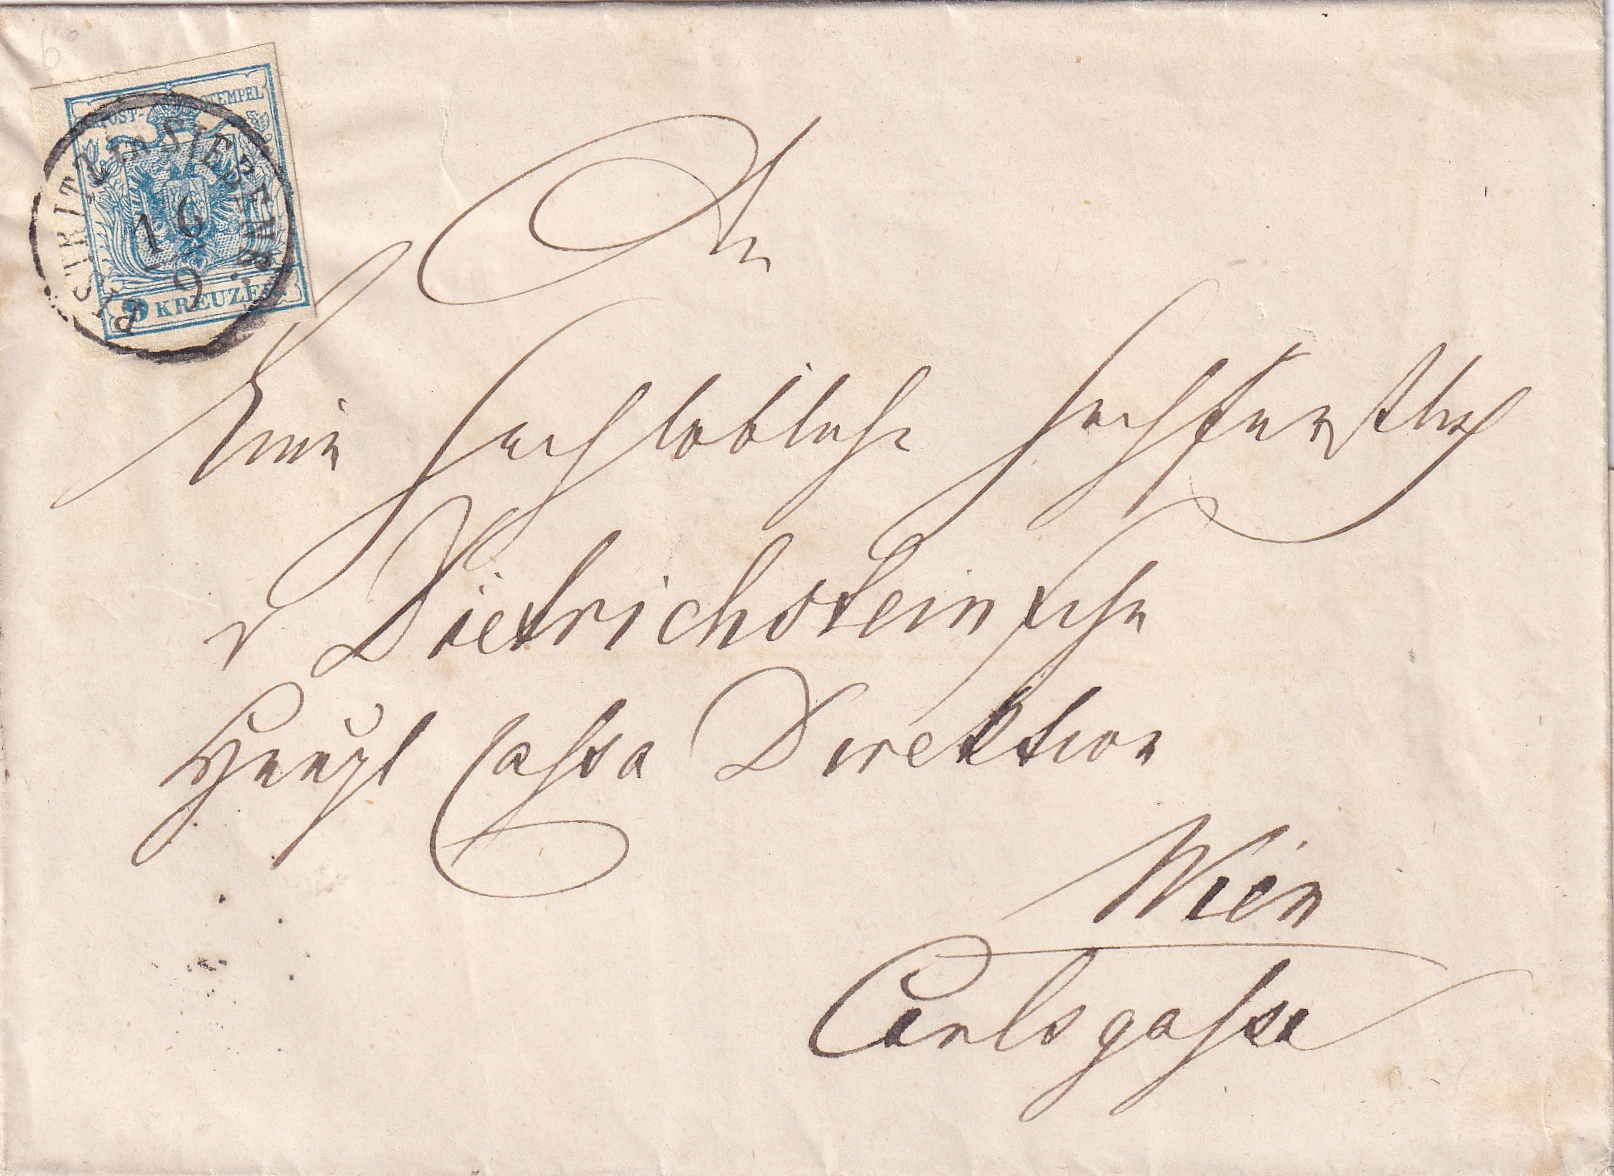 POST- STEMPEL
9 KREUZER
BISTRITZ in SIEBENB:
16
9
An
Eine hochlobliche hochfürstlich
v Dietrichsteinsche
Haupt Cassa Direktion
Wien
Carlsgasse